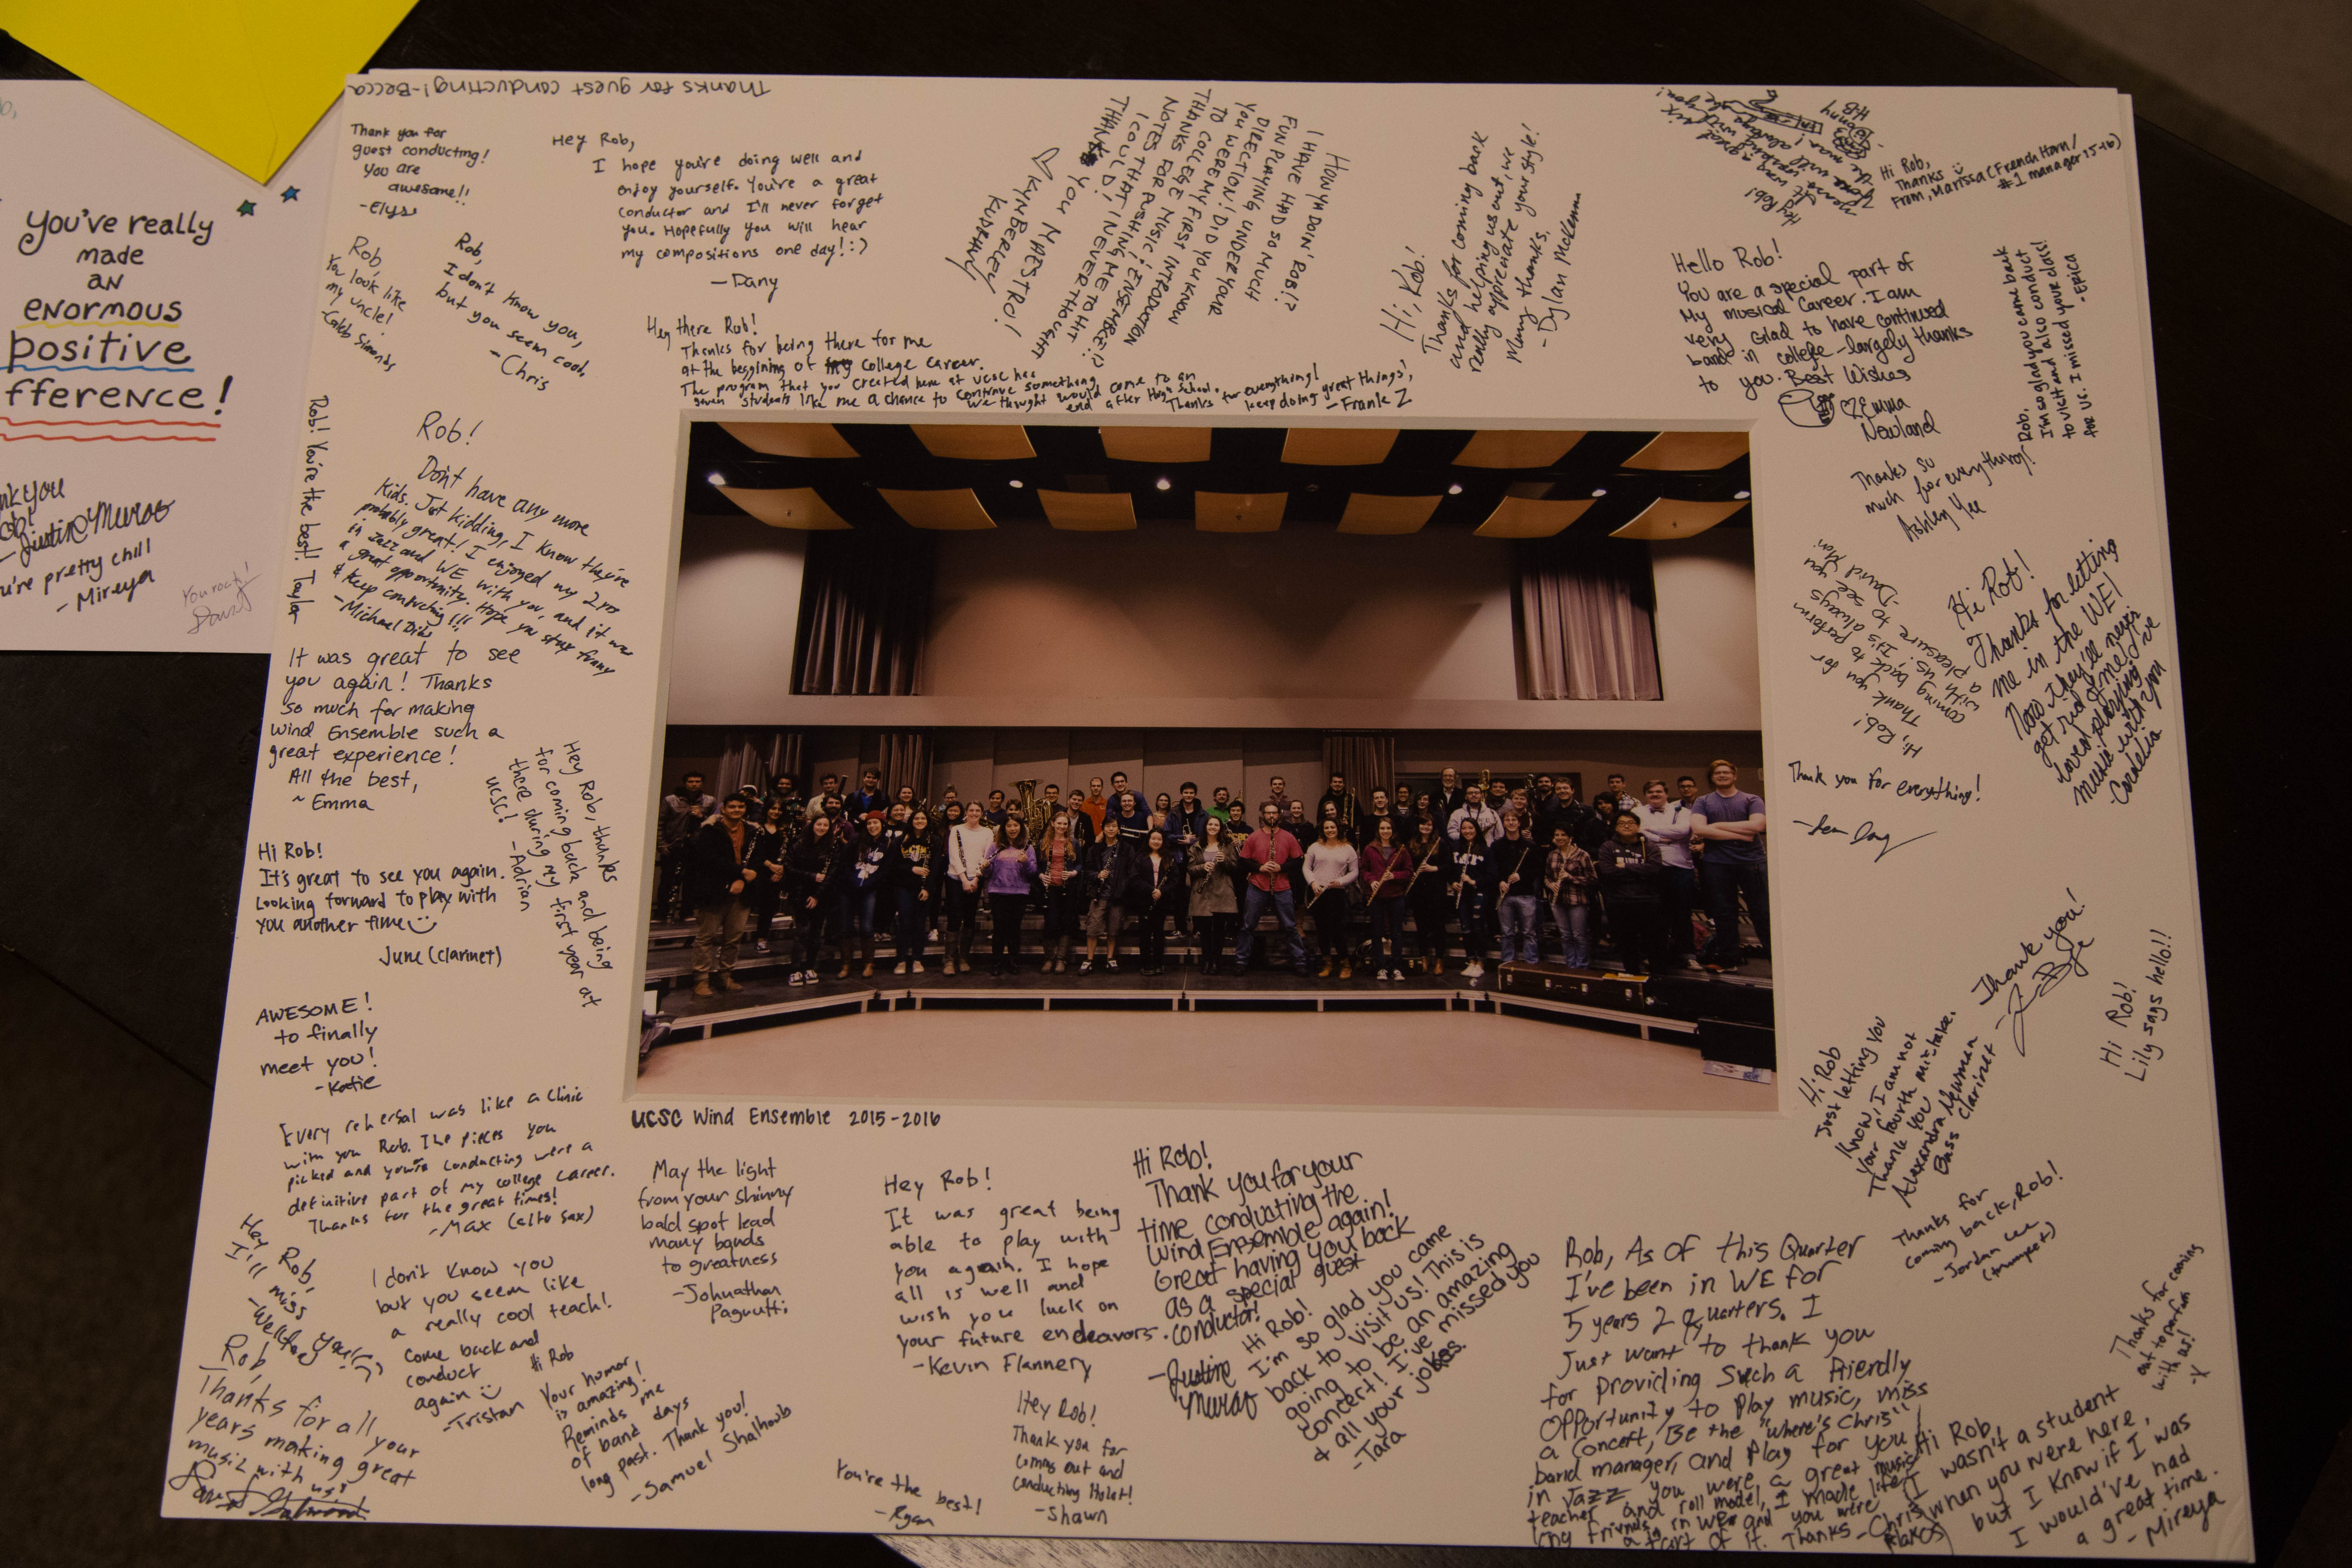 Thanks for guest conducting! -Becca
Thank you for
guest conducting!
You are
awesome!!
-Elyse
Hey Rob,
I hope you're doing well and
enjoy yourself. You're a great
conductor and I'll never forget
you. Hopefully you will hear
my compositions one day! :)
- Dany
Rob,
You look like
my uncle!
-Caleb Simonds
Rob,
I don't know you,
but you seem cool.
- Chris
Hey there Rob!
Thanks for being there for me
at the beggining of my College Career.
The program that you created here at UCSC has
given students like me a chance to continue something
we thought would come to an
end after High School.
Thanks for everything!
keep doing great things!
- Frank Z
HOW YA DOIN' ROB!?
I HAVE HAD SO MUCH
FUN PLAYING UNDER YOUR
DIRECTION! DID YOU KNOW
YOU WERE MY FIRST INTRODUCTION
TO COLLEGE MUSIC & ENSEMBLE!?
THANKS FOR PUSHING ME TO HIT
NOTES THAT I NEVER THOUGHT
I COULD!
THANK YOU MAESTRO!
♡ KYNBERLEY
Hi, Rob!
Thanks for coming back
and helping us out, we
really appreciate your style!
Many thanks,
- Dylan McKenna
Hey Rob!
Hanna
H.B4
Hi Rob,
Thanks :)
From, Marissa (French Horn/
#1 manager 15-16)
Hello Rob!
You are a special part of
my musical career. I am
very glad to have continued
band in college - largely thanks
to you. Best Wishes
♡ Emma
Newland
Rob,
I'm so glad you came back
to visit and also conduct
for us. I missed your class!
- ERICA
Thanks so
much for everything!
Ashley Yee
Hi, Rob!
Thank you for
coming back to perform
with us! It's always
a pleasure to see you
-David Mori
Hi Rob!
Thanks for letting
me in the WE!
Now they'll never
get rid of me! I've
loved playing
music with you
-Cordelia
Thank you for everything!
Thank you!
Hi Rob!
Lily says hello!!
Hi Rob
Just letting you
know, I am not
your fourth mistake.
Thank you
Alexandra Newman
Bass Clarinet
Thanks for
coming back, Rob!
- Jordan
(trumpet)
Thanks for coming
out to perform
with us!
-Y
Rob! You're the best! Taylor
Rob!
Don't have any more
kids. Just kidding, I know they're
probably great! I enjoyed my 2 yrs
in Jazz and WE with you, and it was
a great opportunity. Hope you stay funny
& keep conducting!!!
-Michael Dike
It was great to see
you again! Thanks
so much for making
Wind Ensemble such a
great experience!
All the best,
~ Emma
Hey Rob, thanks
for coming back and being
there during my first year at
UCSC!
-Adrian
Hi Rob!
It's great to see you again.
Looking forward to play with
you another time :)
June (clarinet)
AWESOME!
to finally
meet you!
-Katie
Every rehersal was like a clinic
with you Rob. The pieces you
picked and you're conducting were a
definitive part of my college career.
Thanks for the great times!
-Max (alto sax)
Hey Rob,
I'll miss
you!!
I don't know you
but you seem like
a really cool teach!
Come back and
conduct
again :)
-Tristan
Rob,
Thanks for all your
years making great
music with us!
Hi Rob
Your humor
is amazing!
Reminds me
of band days
long past. Thank you!
-Samuel Shalhoub
UCSC Wind Ensemble 2015-2016
May the light
from your shinny
bald spot lead
many bands
to greatness
-Johnathan
Pagnutti
Hey Rob!
It was great being
able to play with
you again. I hope
all is well and
wish you luck on
your future endeavors.
-Kevin Flannery
Hi Rob!
Thank you for your
time conducting the
Wind Ensemble again!
Great having you back
as a special guest
conductor!
-Justine
Muros
Hi Rob!
I'm so glad you came
back to visit us! This is
going to be an amazing
concert! I've missed you
+ all your jokes.
-Tara
You're the best!
-Ryan
Hey Rob!
Thank you for
coming out and
conducting Holst!
-Shawn
Rob, As of this Quarter
I've been in WE for
5 years 2 Quarters. I
Just want to thank you
for providing such a friendly
opportunity to play music, miss
a concert, Be the "where's Chris"
band manager, and play for you
in Jazz. You were a great music
teacher and roll model, I made life
long friends in WE and you were
a part of it. Thanks -Chris
Hi Rob,
I wasn't a student
when you were here,
but I know if I was
I would've had
a great time.
- Mireya
You've really
made
an
enormous
positive
fference!
nk you
ob!
-Justin Muros
u're pretty chill
- Mireya
You rock!